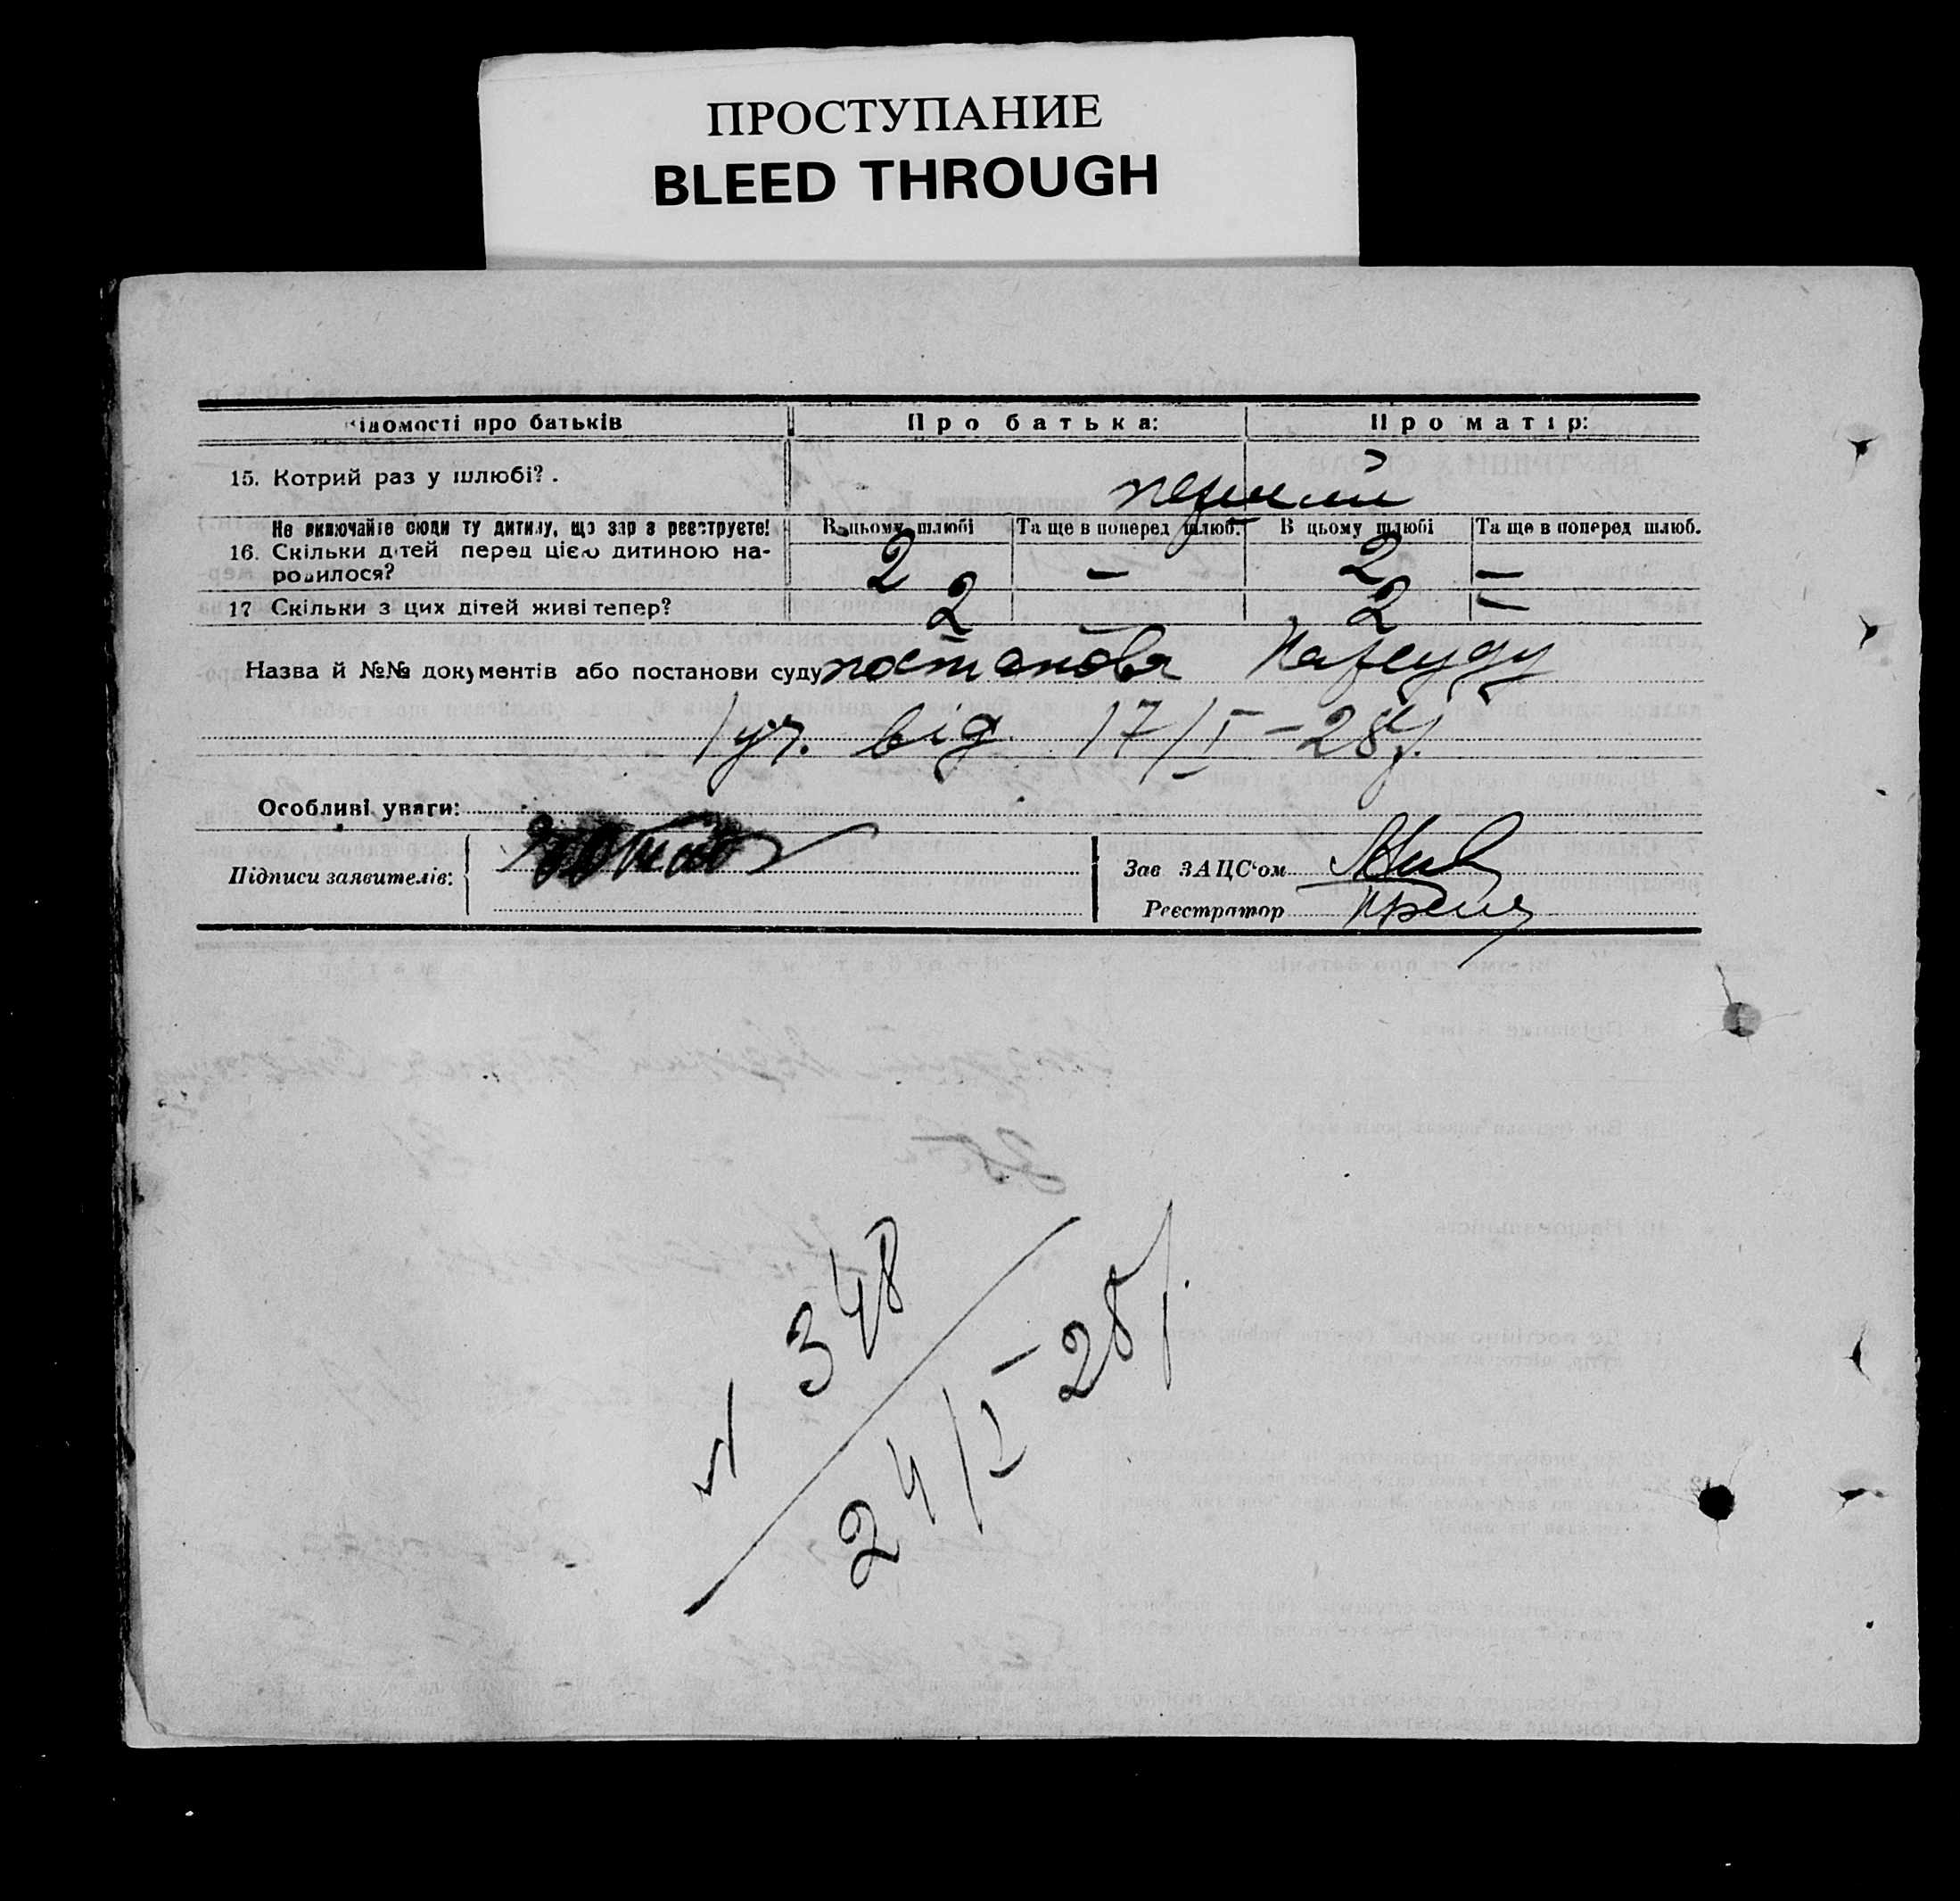 ПРОСТУПАНИЕ
BLEED THROUGH
Відомості про батьків Про батька: Про матір:
15. Котрий раз у шлюбі? . перший
Не включайте сюди ту дитину, що зараз реєструєте! В цьому шлюбі Та ще в поперед шлюб. В цьому шлюбі Та ще в поперед шлюб.
16. Скільки дітей перед цією дитиною на-
родилося? 2 — 2 —
17 Скільки з цих дітей живі тепер? 2 2 —
Назва й №№ документів або постанови суду постанова Нарсуду
1 уч. від 17/I – 28 р.
Особливі уваги:
Підписи заявителів:
Зав ЗАЦС‘ом
Реєстратор
№ 348
24/I – 28 р.